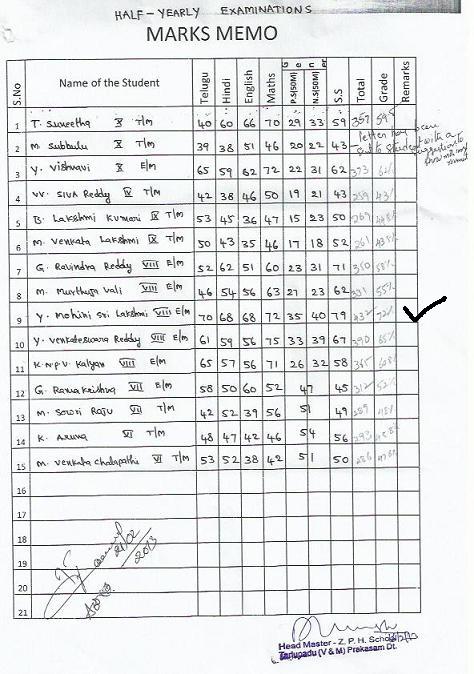 HALF-YEARLY EXAMINATIONS
MARKS MEMO
S.No Name of the Student Telugu Hindi English Maths Gener P.S(50M) N.S(50M) S.S Total Grade Remarks
1 T. Suneetha X T/M 40 60 66 70 29 33 59 357 59%
2 M Subbulu X T/M 39 38 51 46 20 22 43 letter has been
3 Y. Vishnavi X E/M 65 59 62 72 22 31 62 373 62%
4 VV. SIVA Reddy IX T/M 42 38 46 50 19 21 43 259 43%
5 B. Lakshmi Kumari IX T/M 53 45 36 47 15 23 50 269
6 M. Venkata Lakshmi IX T/M 50 43 35 46 17 18 52 261
7 G. Ravindra Reddy VIII E/M 52 62 51 60 23 31 71 350 58%
8 M. Murthuja Vali VIII E/M 46 54 56 63 27 23 62 331 55%
9 Y. Mohini Sri Lakshmi VIII E/M 70 68 68 72 35 40 79 432 72%
10 Y. Venkateswara Reddy VIII E/M 61 59 56 75 33 39 67 390 65%
11 K.N.P.V. Kalyan VIII E/M 65 57 56 71 26 32 58 365
12 G. Rama Krishna VII E/M 58 50 60 52 47 45 312 52%
13 M. Sowri Raju VII T/M 42 52 39 56 51 49 289 48%
14 K. Aruna VI T/M 48 47 42 46 54 56 293
15 M. Venkata Chalapathi VI T/M 53 52 38 42 51 50 286
16
17
18
19
20
21
21/02
2013
Head Master - Z. P. H. School
Tarlupadu (V & M) Prakasam Dt.